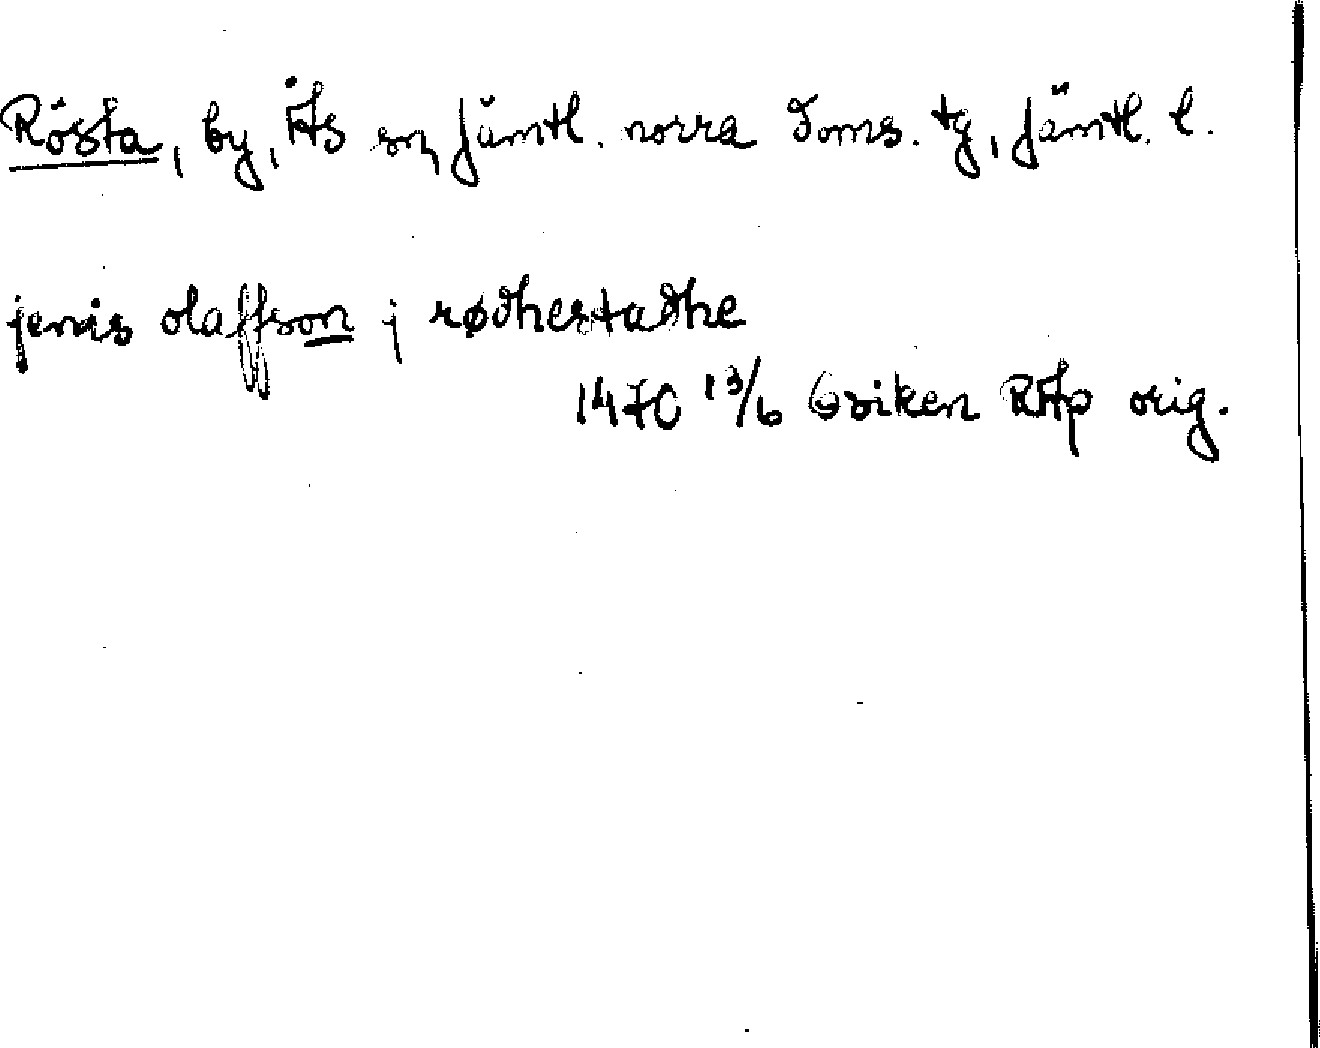 Rösta, by, Ås sn, Jämtl. norra doms. tg, Jämtl. l.
jenis olaffson j rødhestadhe
1470 13/6 Ösiken RAp orig.